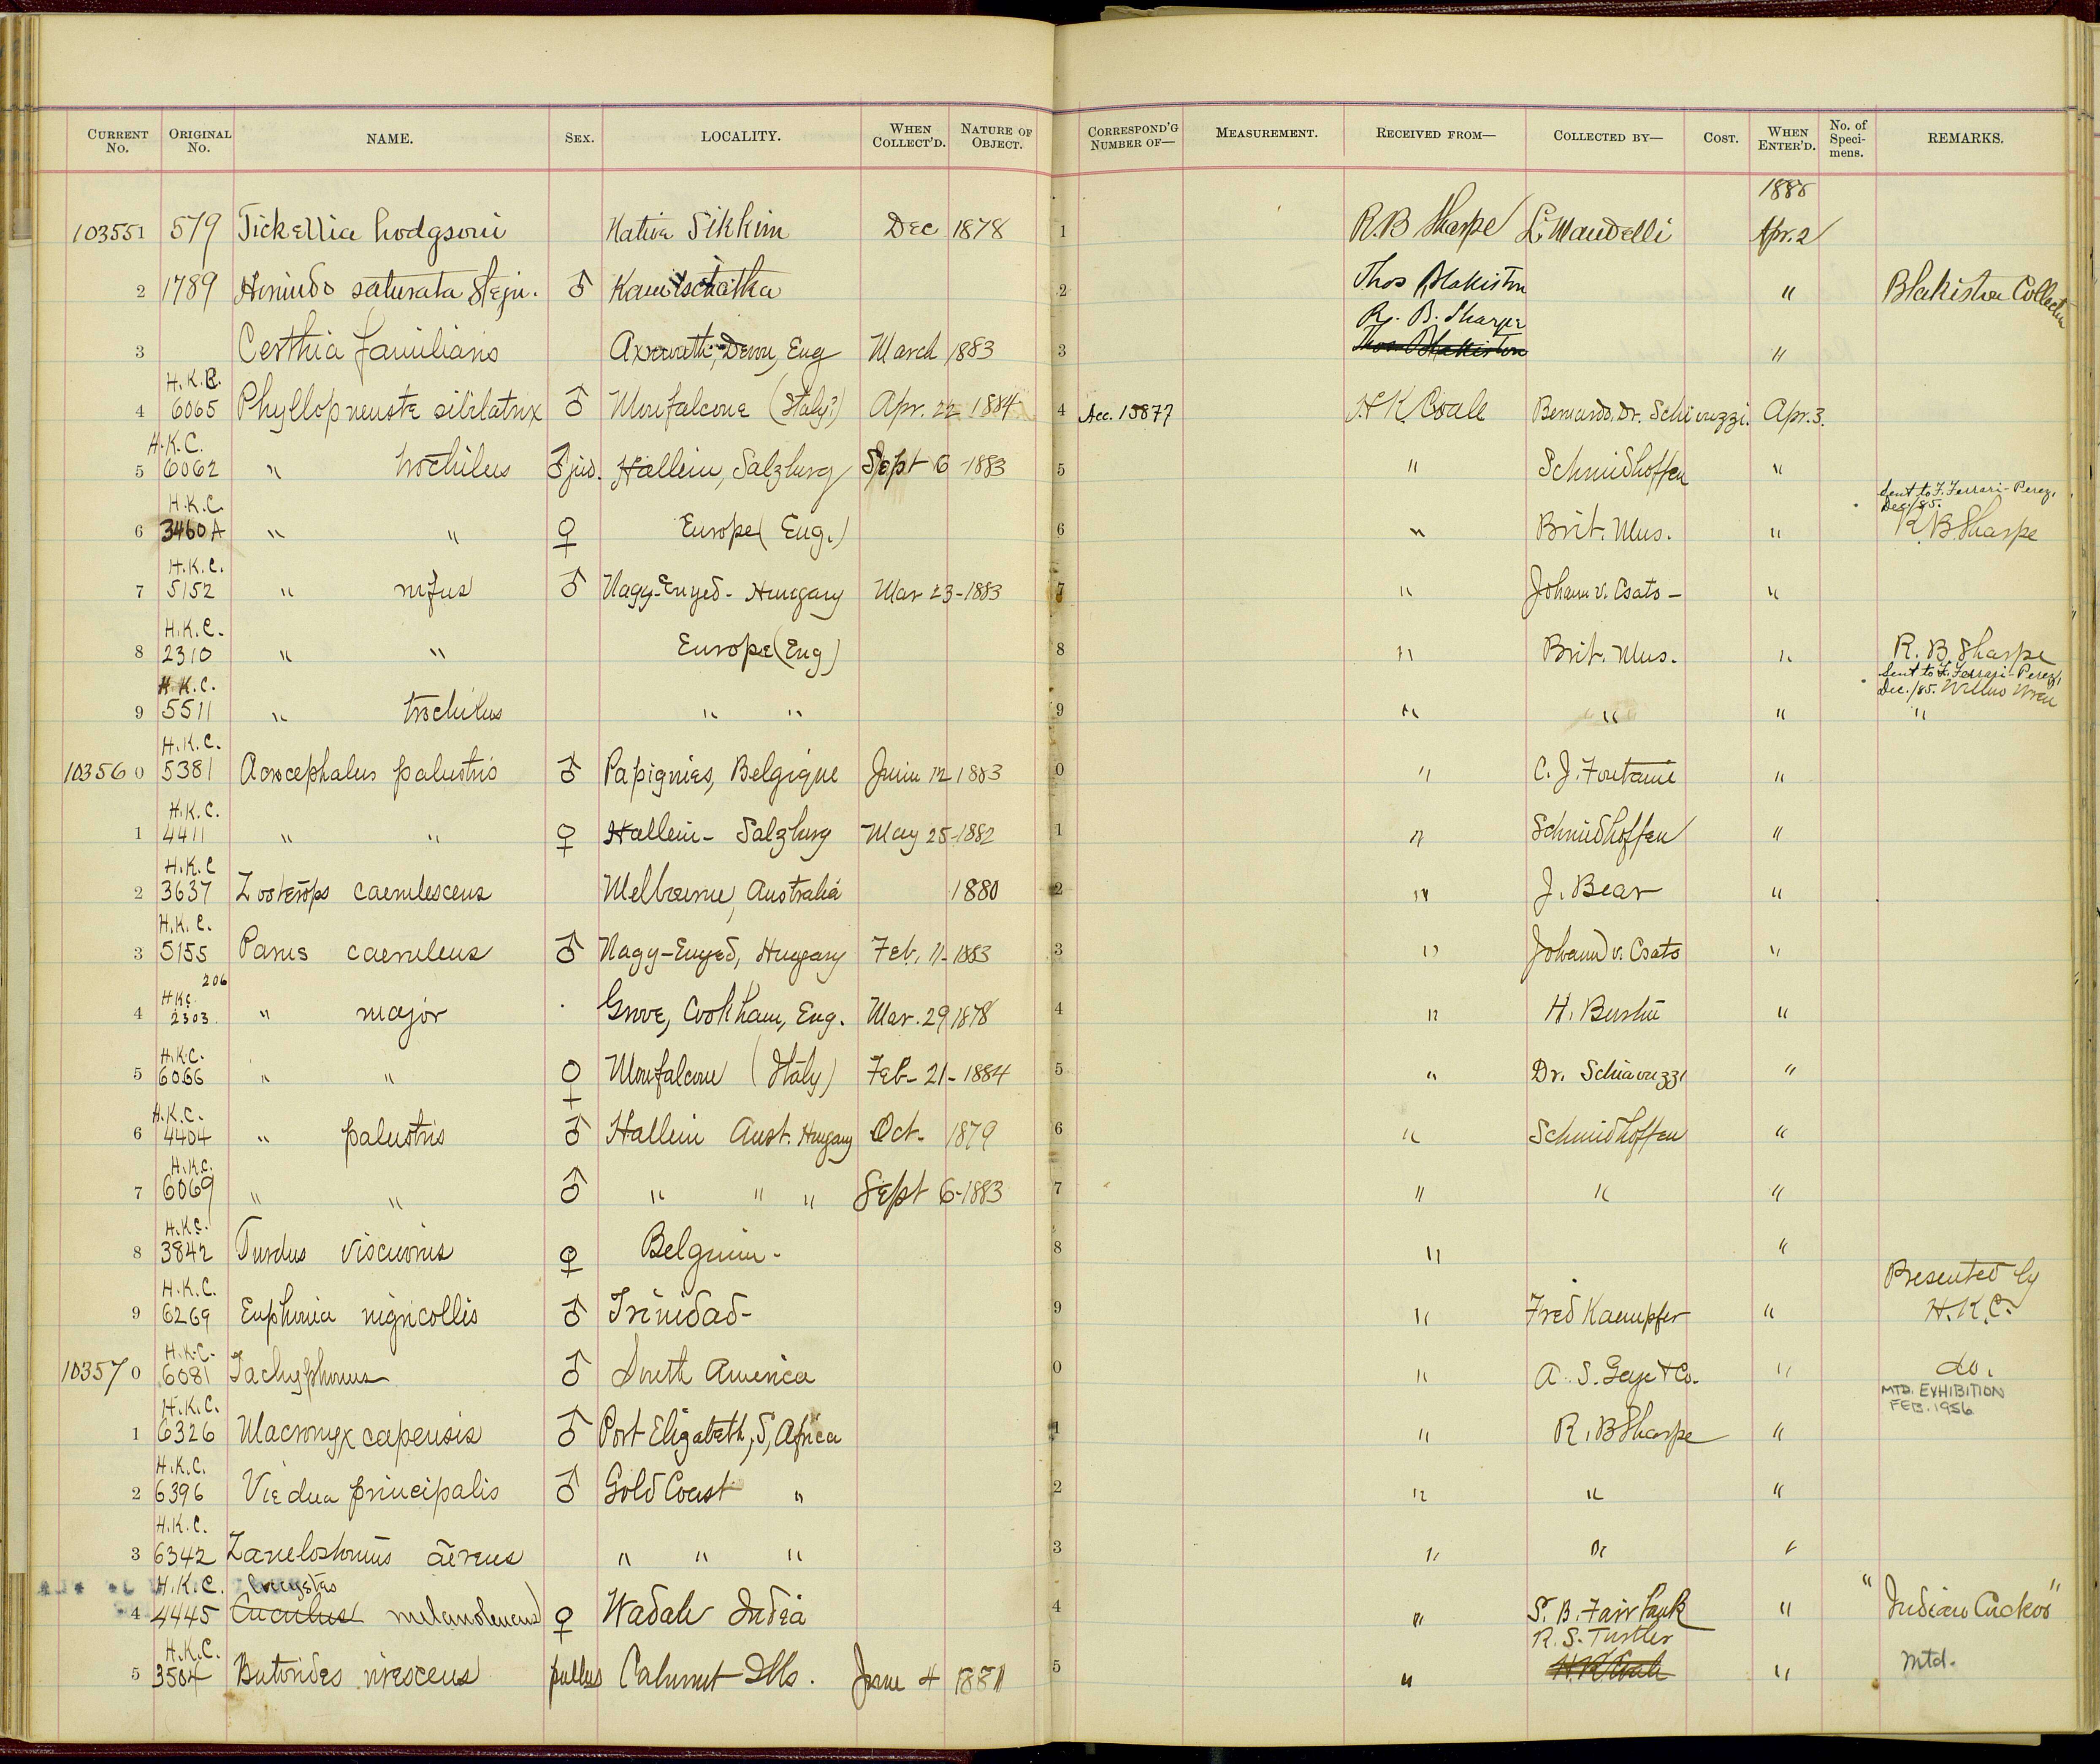 CURRENT No. ORIGINAL No. NAME. SEX. LOCALITY. WHEN COLLECT'D. NATURE OF OBJECT. CORRESPOND'G NUMBER OF— MEASUREMENT. RECEIVED FROM— COLLECTED BY— COST. WHEN ENTER'D. No. of Specimens. REMARKS.
1885
103551 579 Tickellia hodgsoni Native Sikkim Dec 1878 1 R.B Sharpe L. Mandelli Apr. 2
2 1789 Hirundo saturata Stejn. ♂ Kamtschatka 2 Thos Blakiston " Blakiston Collection
R. B. Sharpe
3 Certhia familiaris Devon, Eng March 1883 3 Thos Blakiston "
H.K.C.
4 6065 Phyllopneuste sibilatrix ♂ Monfalcone (Italy?) Apr. 22 1884 4 Acc. 15877 H K Coale Bernardo, Dr. Schiavuzzi. Apr. 3.
H.K.C.
5 6062 " trochilus ♂ juv. Hallein, Salzburg Sept 6 -1883 5 " Schmidhoffen "
H.K.C. Sent to F. Ferrari-Perez, Dec./85.
6 3460A " " ♀ Europe (Eng.) 6 " Brit. Mus. " R B Sharpe
H.K.C.
7 5152 " rufus ♂ Nagy-Enyed - Hungary Mar 23-1883 7 " Johann v. Csato - "
H.K.C.
8 2310 " " Europe (Eng) 8 " Brit. Mus. " R. B. Sharpe
H.K.C. Sent to F. Ferrari-Perez, Dec./85. Willow Wren
9 5511 " trochilus " " 9 " " " "
H.K.C.
103560 5381 Acrocephalus palustris ♂ Papignies, Belgique Juin 12 1883 0 " C. J. Fontaine "
H.K.C.
1 4411 " " ♀ Hallein - Salzburg May 25-1882 1 " Schmidhoffen "
H.K.C
2 3637 Zosterops caerulescens Melbourne, Australia 1880 2 " J. Bear "
H.K.C.
3 5155 Parus caeruleus ♂ Nagy-Enyed, Hungary Feb. 11-1883 3 " Johann v. Csato "
206
HKC
4 2303. " major Grove, Cookham, Eng. Mar. 29 1878 4 " H. "
H.K.C.
5 6066 " " ♀ Monfalcone (Italy) Feb- 21- 1884 5 " Dr. Schiavuzzi "
H.K.C.
6 4404 " palustris ♂ Hallein Aust. Hungary Oct- 1879 6 " Schmidhoffen "
H.K.C.
7 6069 " " ♂ " " " Sept 6-1883 7 " " "
H.K.C.
8 3842 Turdus viscivorus ♀ Belgium - 8 " "
H.K.C. Presented by
9 6269 Euphonia nigricollis ♂ Trinidad- 9 " Fred Kaempfer " H.K.C.
H.K.C-
103570 6081 Tachyphonus ♂ South America 0 " A. S. & Co. " do.
H.K.C. MTD. EXHIBITION FEB. 1956
1 6326 Macronyx capensis ♂ Port Elizabeth, S, Africa 1 " R. B Sharpe "
H.K.C.
2 6396 Viedua principalis ♂ Gold Coast " 2 " " "
H.K.C.
3 6342 aereus " " " 3 " " "
H.K.C. Coccystes
4 4445 Cuculus melanoleucus ♀ Wadale India 4 " S. B. Fairbank " "Indian Cuckoo"
H.K.C. R. S. Turtler
5 3504 Butorides virescens pullus Calumet Ills. June 4 1881 5 " H K Coale " Mtd.